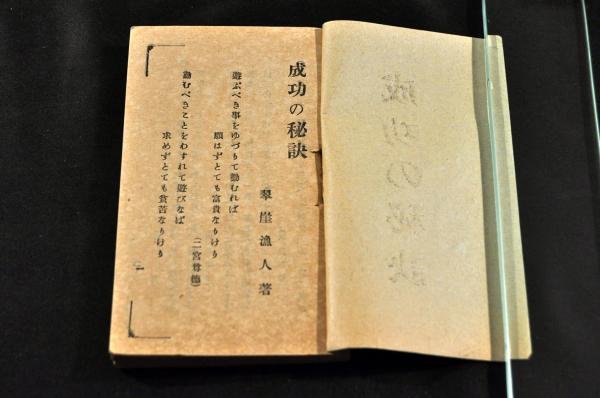 成功の秘訣
成功の秘訣
翠崖漁人著
遊ぶべき事をゆづりて勤むれば
願はずとても富貴なりけり
(二宮尊徳)
勤むべきことをわすれて遊びなば
求めずとても貧苦なりけり
一